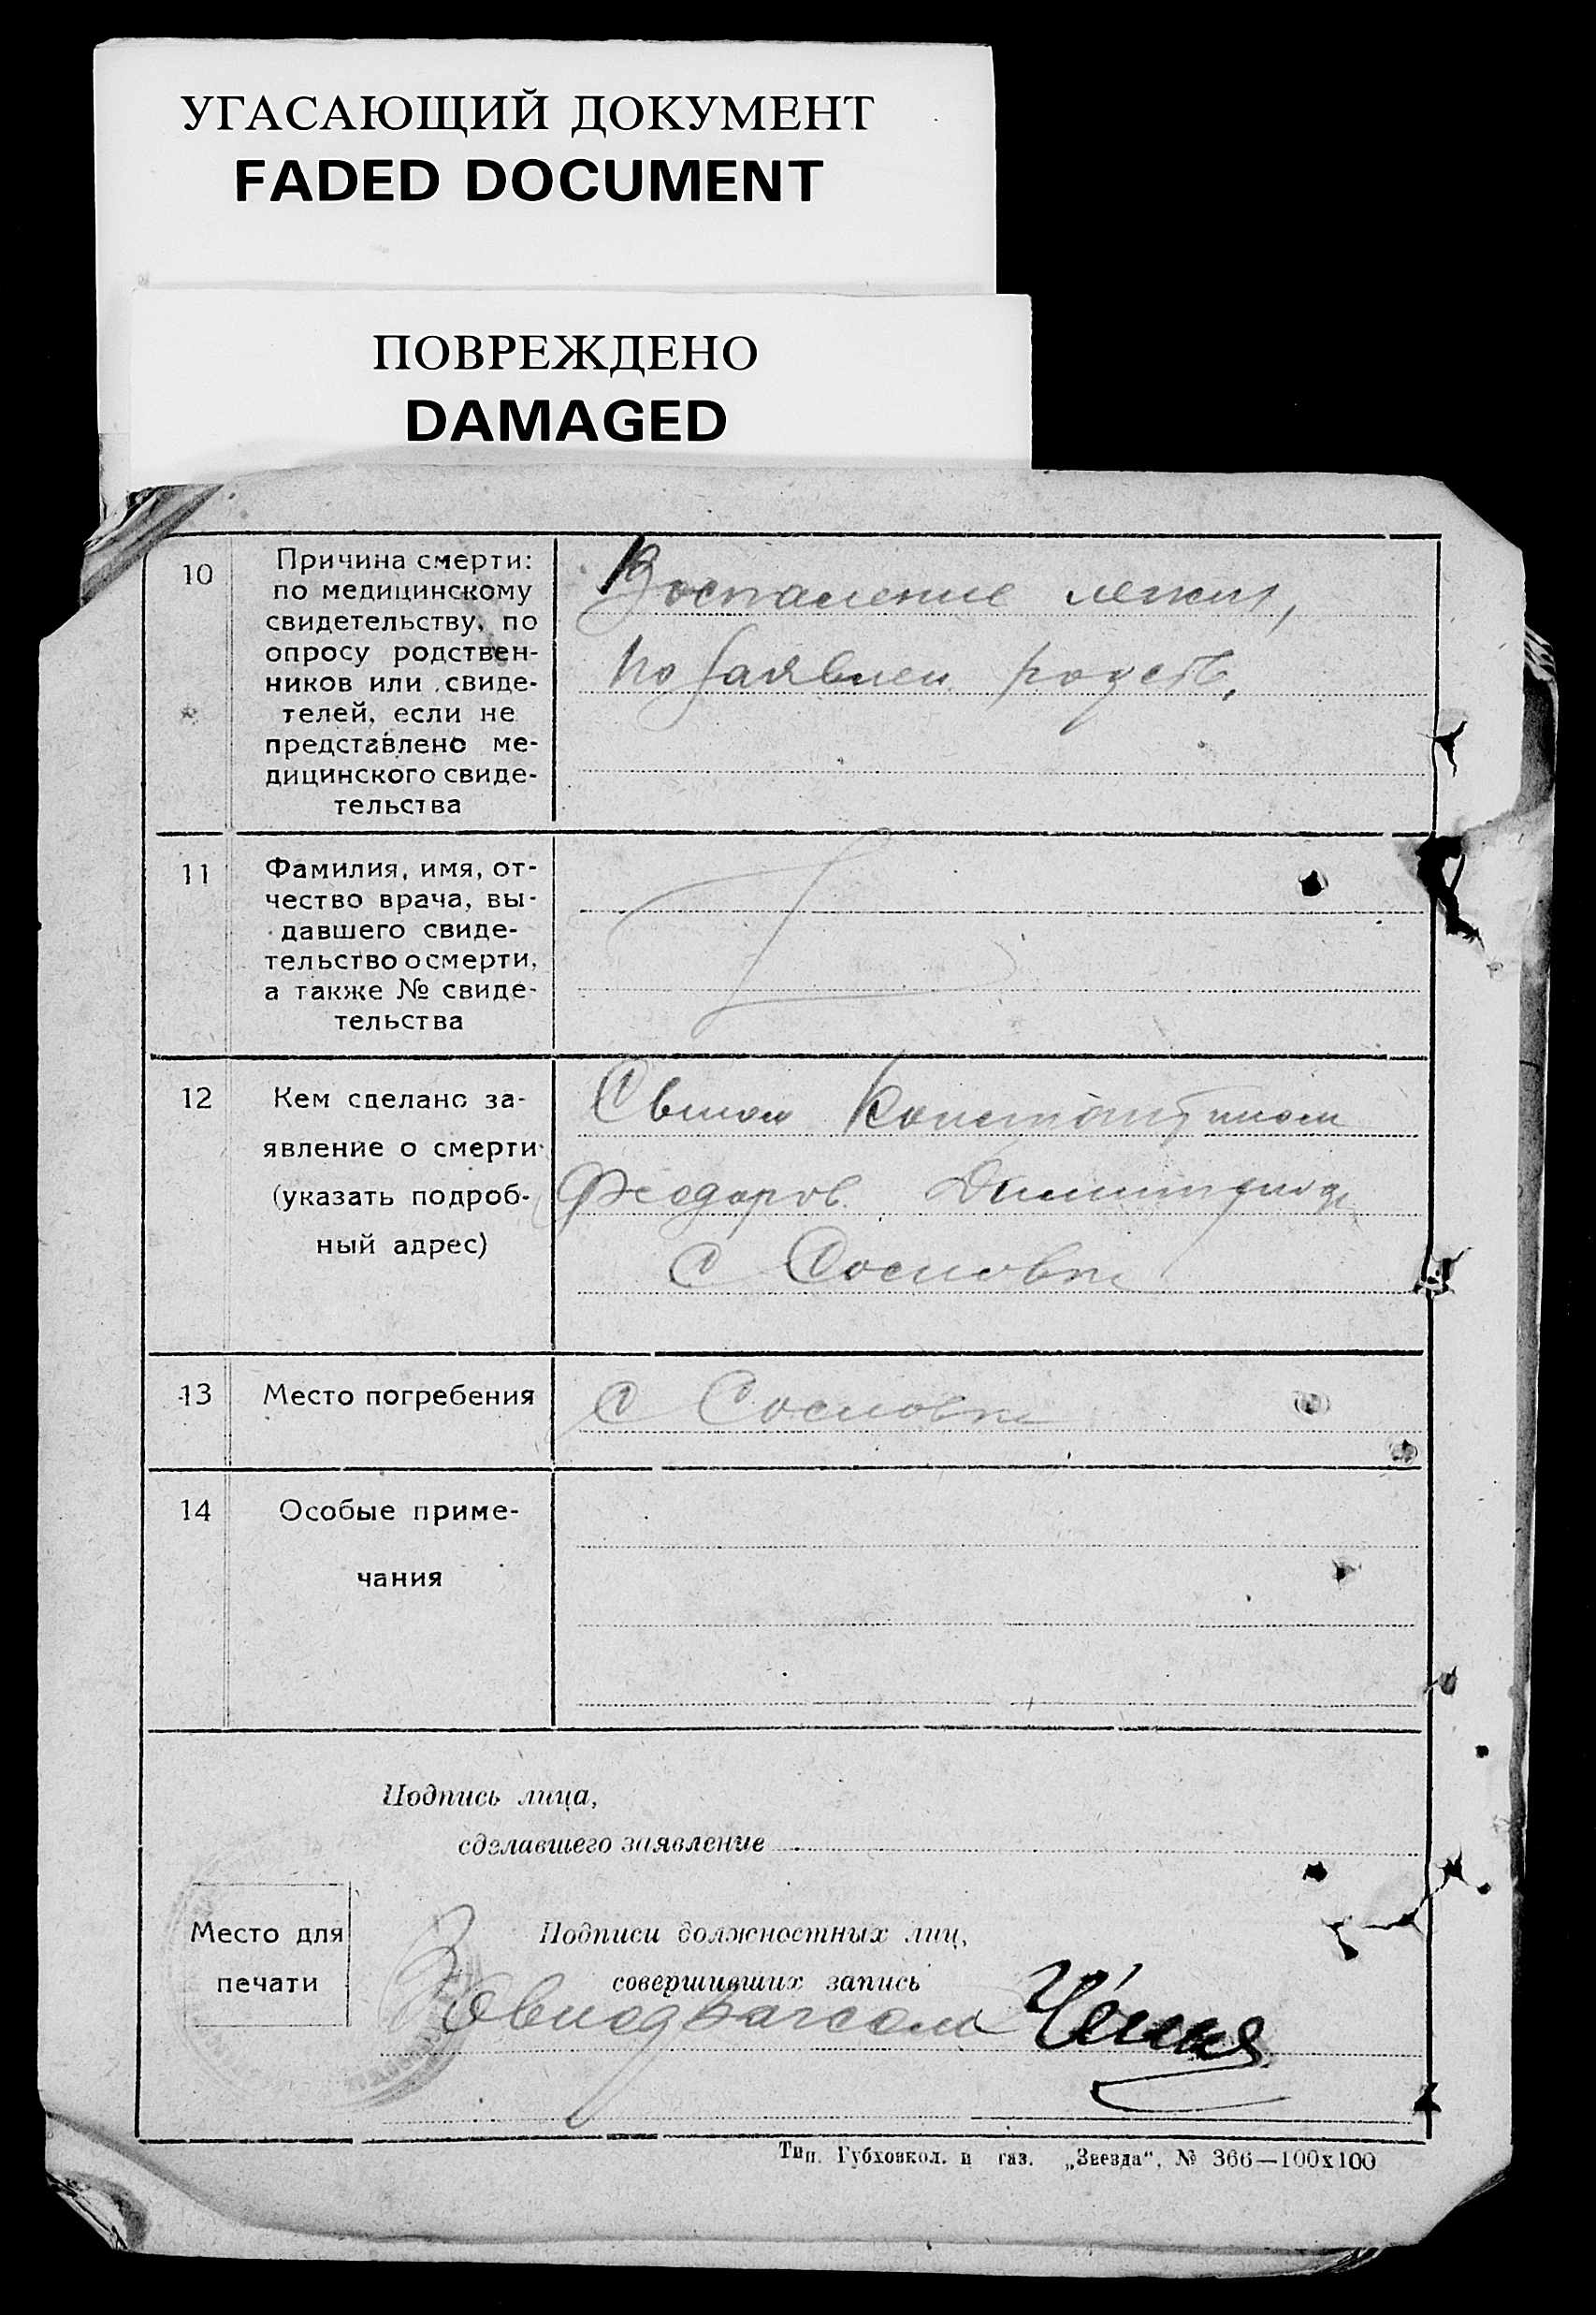 УГАСАЮЩИЙ ДОКУМЕНТ
FADED DOCUMENT
ПОВРЕЖДЕНО
DAMAGED
10
Причина смерти:
по медицинскому
свидетельству, по
опросу родствен-
ников или свиде-
телей, если не
представлено ме-
дицинского свиде-
тельства
Воспаление легких,
по заявлен родств.
11
Фамилия, имя, от-
чество врача, вы-
давшего свиде-
тельство о смерти,
а также № свиде-
тельства
12
Кем сделано за-
явление о смерти
(указать подроб-
ный адрес)
Сыном Константином
Феодоров.
с Сосновка
13
Место погребения
с Сосновка
14
Особые приме-
чания
Подпись лица,
сделавшего заявление
Место для
печати
Подписи должностных лиц,
совершивших запись
Тип. Губховкол. и газ. „Звезда“, № 366—100х100